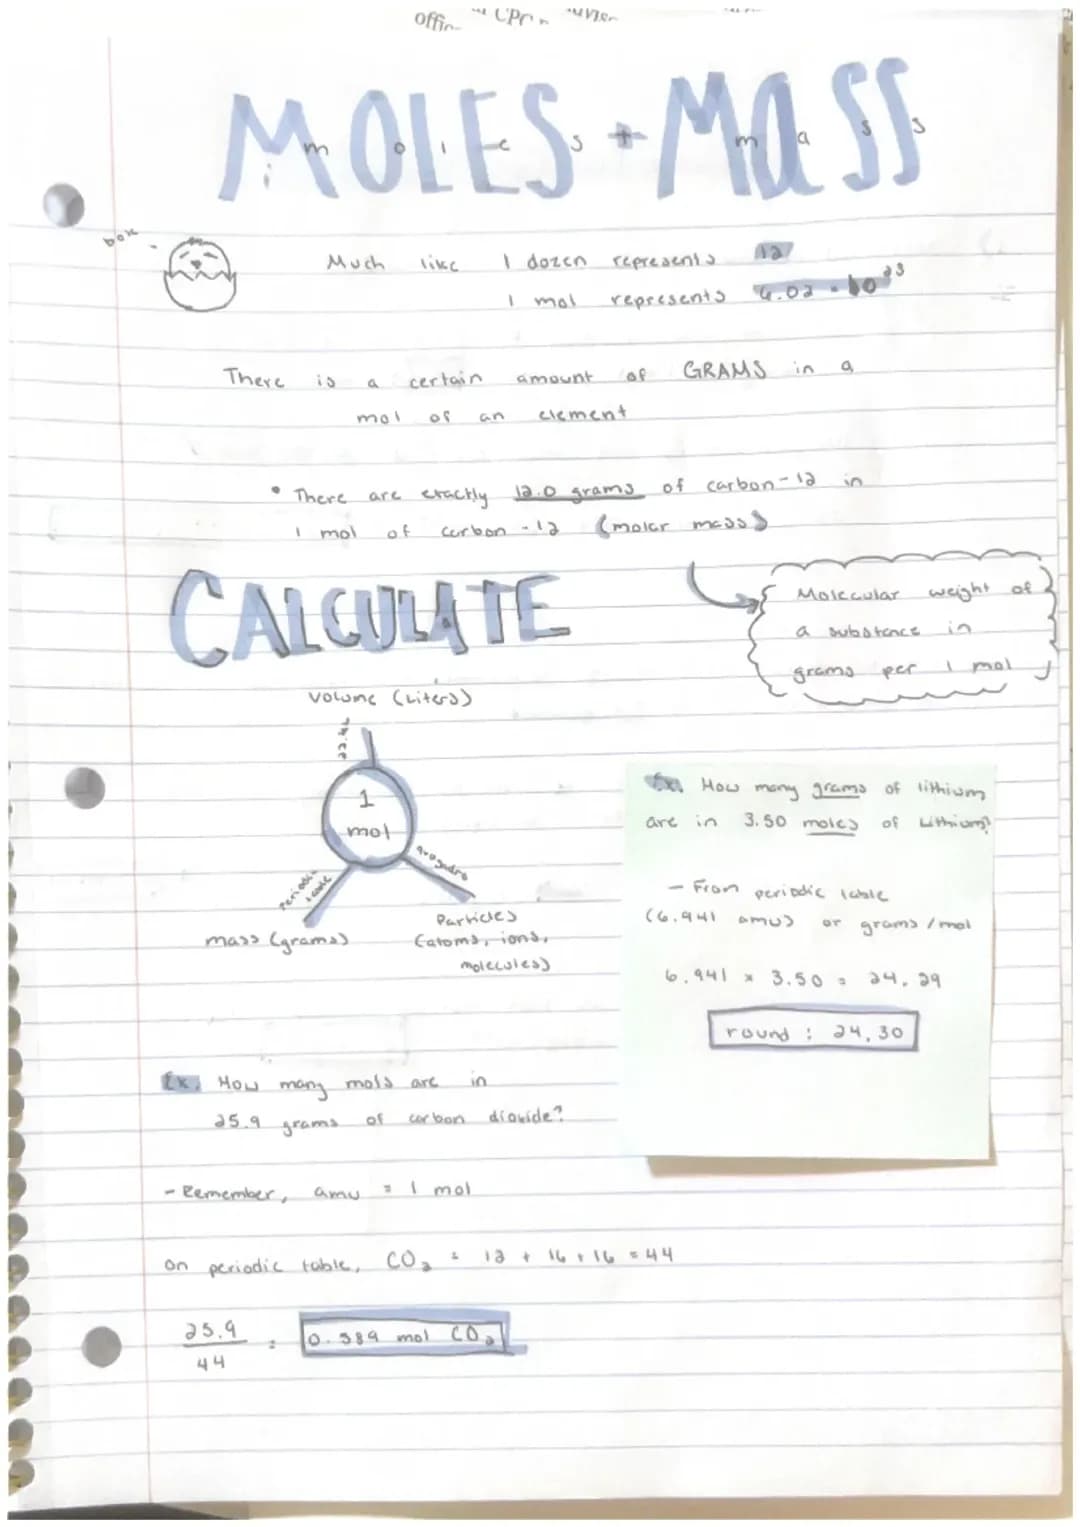 MOLES + MASS
moles + mass
Much like 1 dozen represents 12
1 mol represents 6.02 × 10²³
There is a certain amount of GRAMS in a
mol of an element
• There are exactly 12.0 grams of carbon-12 in
1 mol of carbon-12 (molar mass)
Molecular weight of
a substance in
grams per 1 mol
CALCULATE
Volume (Liters)
22.4L
1
mol
periodic
table
avogadro
mass (grams)
Particles
(atoms, ions,
molecules)
Ex. How many grams of lithium
are in 3.50 moles of Lithium?
- From periodic table
(6.941 amu) or grams/mol
6.941 × 3.50 = 24.29
round: 24.30
Ex. How many mols are in
25.9 grams of carbon dioxide?
- Remember, amu = 1 mol
On periodic table, CO₂ = 12 + 16 + 16 = 44
25.9
44
= 0.589 mol CO₂